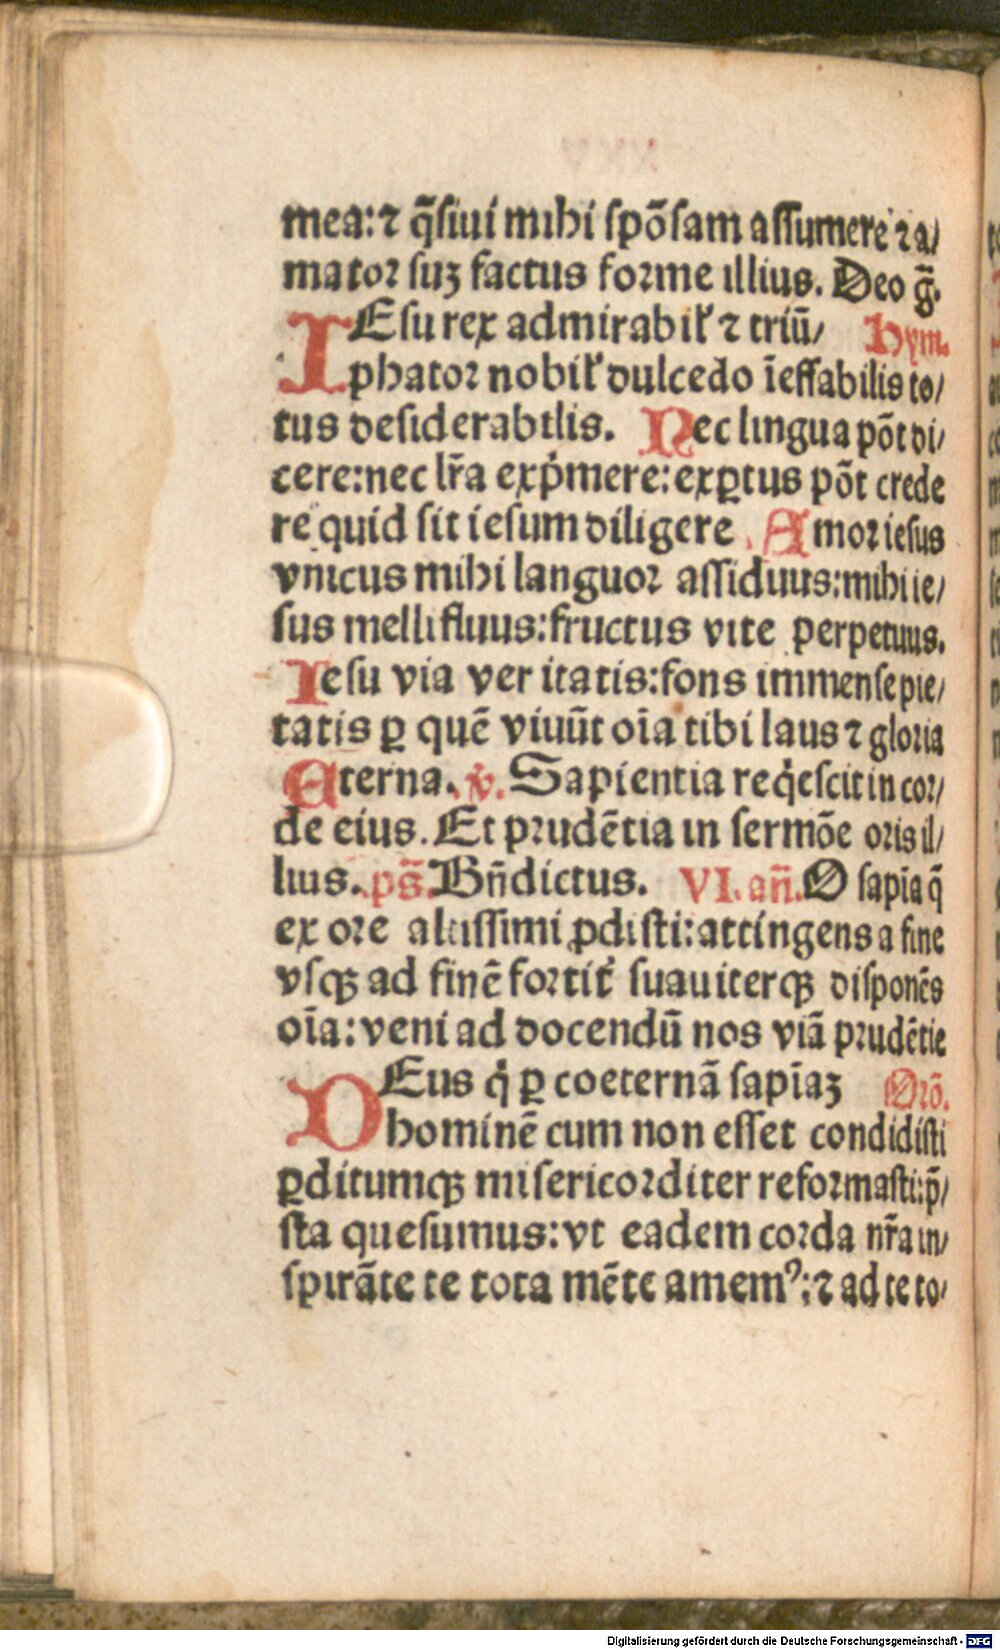 mea: ⁊ q̄siui mihi spōsam assumere ⁊ a/
mator suꝫ factus forme illius. Deo ḡ.
IEsu rex admirabil̛ ⁊ triū/ Hym.
phator nobil̛ dulcedo īeffabilis to/
tus desiderabilis. Nec lingua pōt di/
cere: nec lr̄a exp̍mere: exꝑtus pōt crede
re quid sit iesum diligere Amor iesus
vnicus mihi languor assiduus: mihi ie/
sus mellifluus: fructus vite perpetuus.
Iesu via veritatis: fons immense pie/
tatis ꝑ quē viuūt oīa tibi laus ⁊ gloria
Eterna. ꝟ. Sapientia reqͥescit in cor/
de eius. Et prudētia in sermōe oris il/
lius. ps̄. Bn̄dictus. VI. an̄. O sapīa q̄
ex ore altissimi ꝓdisti: attingens a fine
vsqꝫ ad finē fortit̛ suauiterqꝫ disponēs
oīa: veni ad docendū nos viā prudētie
DEus qͥ ꝑ coeternā sapīaꝫ Orō.
hominē cum non esset condidisti
ꝑditumqꝫ misericorditer reformasti: p̄/
sta quesumus: vt eadem corda nr̄a in/
spirāte te tota mēte amemꝰ: ⁊ ad te to/
Digitalisierung gefördert durch die Deutsche Forschungsgemeinschaft - DFG